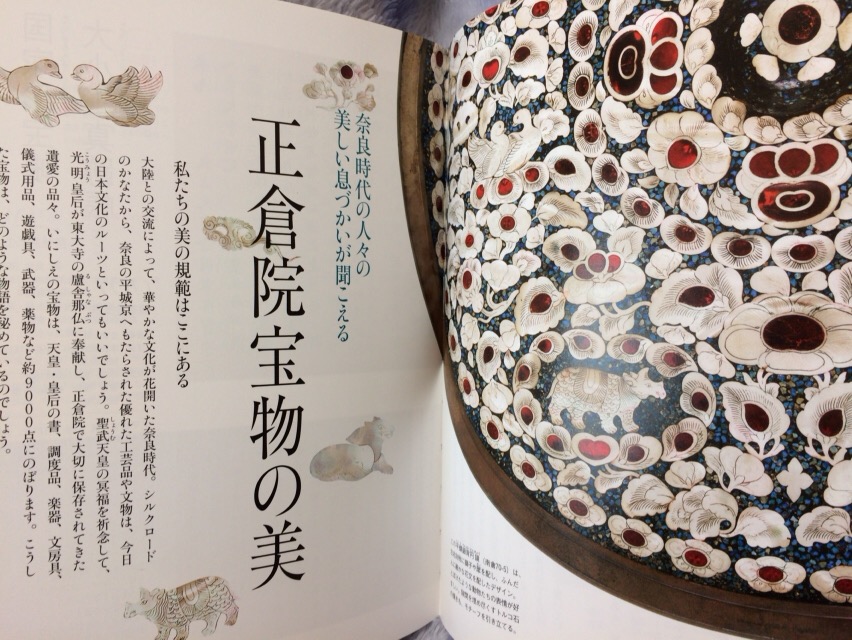 奈良時代の人々の
美しい息づかいが聞こえる
正倉院宝物の美
私たちの美の規範はここにある
大陸との交流によって、華やかな文化が花開いた奈良時代。シルクロード
のかなたから、奈良の平城京へもたらされた優れた工芸品や文物は、今日
の日本文化のルーツといってもいいでしょう。聖武天皇の冥福を祈念して、
光明皇后が東大寺の盧舎那仏に奉献し、正倉院で大切に保存されてきた
遺愛の品々。いにしえの宝物は、天皇・皇后の書、調度品、楽器、文房具、
儀式用品、遊戯具、武器、薬物など約9000点にのぼります。こうし
た宝物は、どのような物語を秘めているのでしょう。